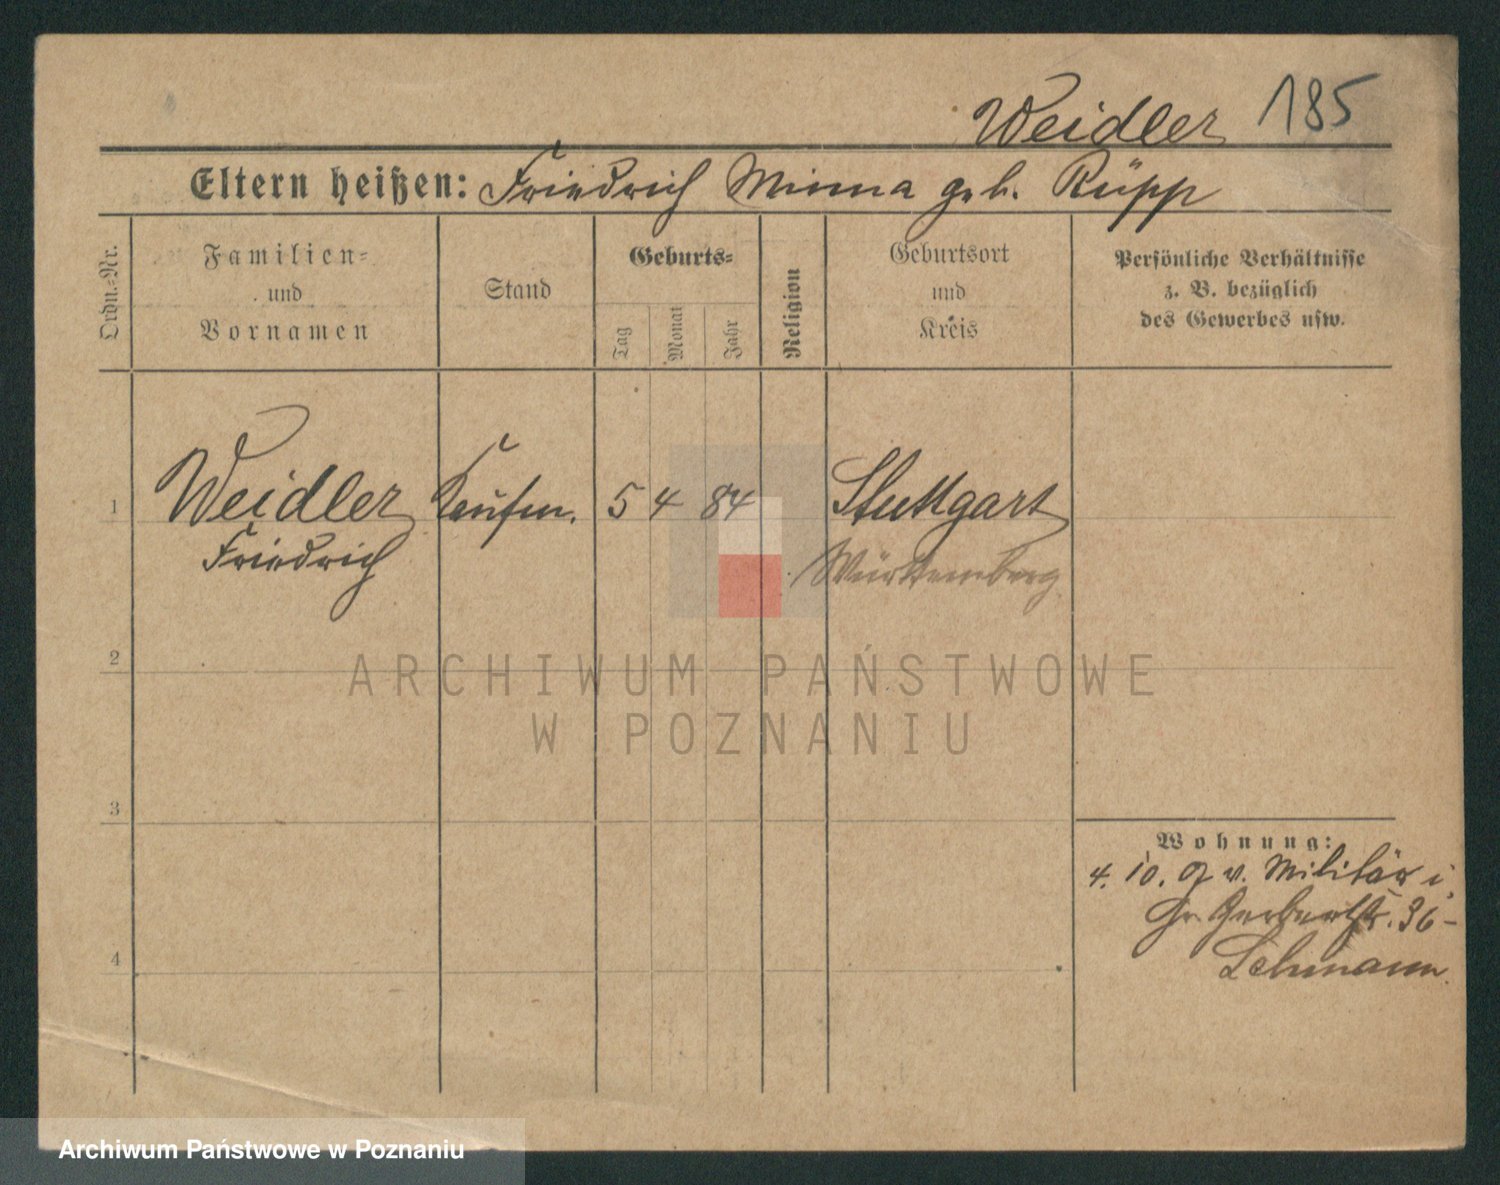 Weidler 185
Eltern heißen: Friedrich Minna geb. Rüpp
Ordn.-Nr.
Familien-
und
Vornamen
Stand
Geburts-
Tag
Monat
Jahr
Religion
Geburtsort
und
Kreis
Persönliche Verhältnisse
z. B. bezüglich
des Gewerbes usw.
1 Weidler Kaufm. 5 4 84 Stuttgart
Friedrich Württemberg
2
ARCHIWUM PAŃSTWOWE
W POZNANIU
3
Wohnung:
4. 10. 07 v. Militär i.
Gr. Gerberstr. 36-
Lehmann
4
Archiwum Państwowe w Poznaniu